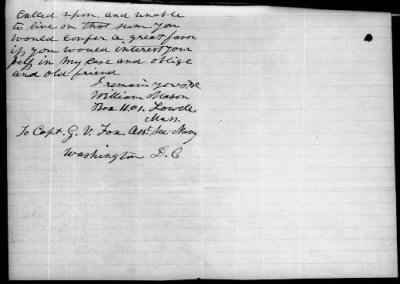 called upon. and unable
to live on that sum you
would confer a great favor
if you would interest your
self in my case and oblige
and old friend
I remain yours, &c
William Mason
Box 1101. Lowell
Mass.
To Capt. G. V. Fox. Asst. Sec. Navy
Washington D. C